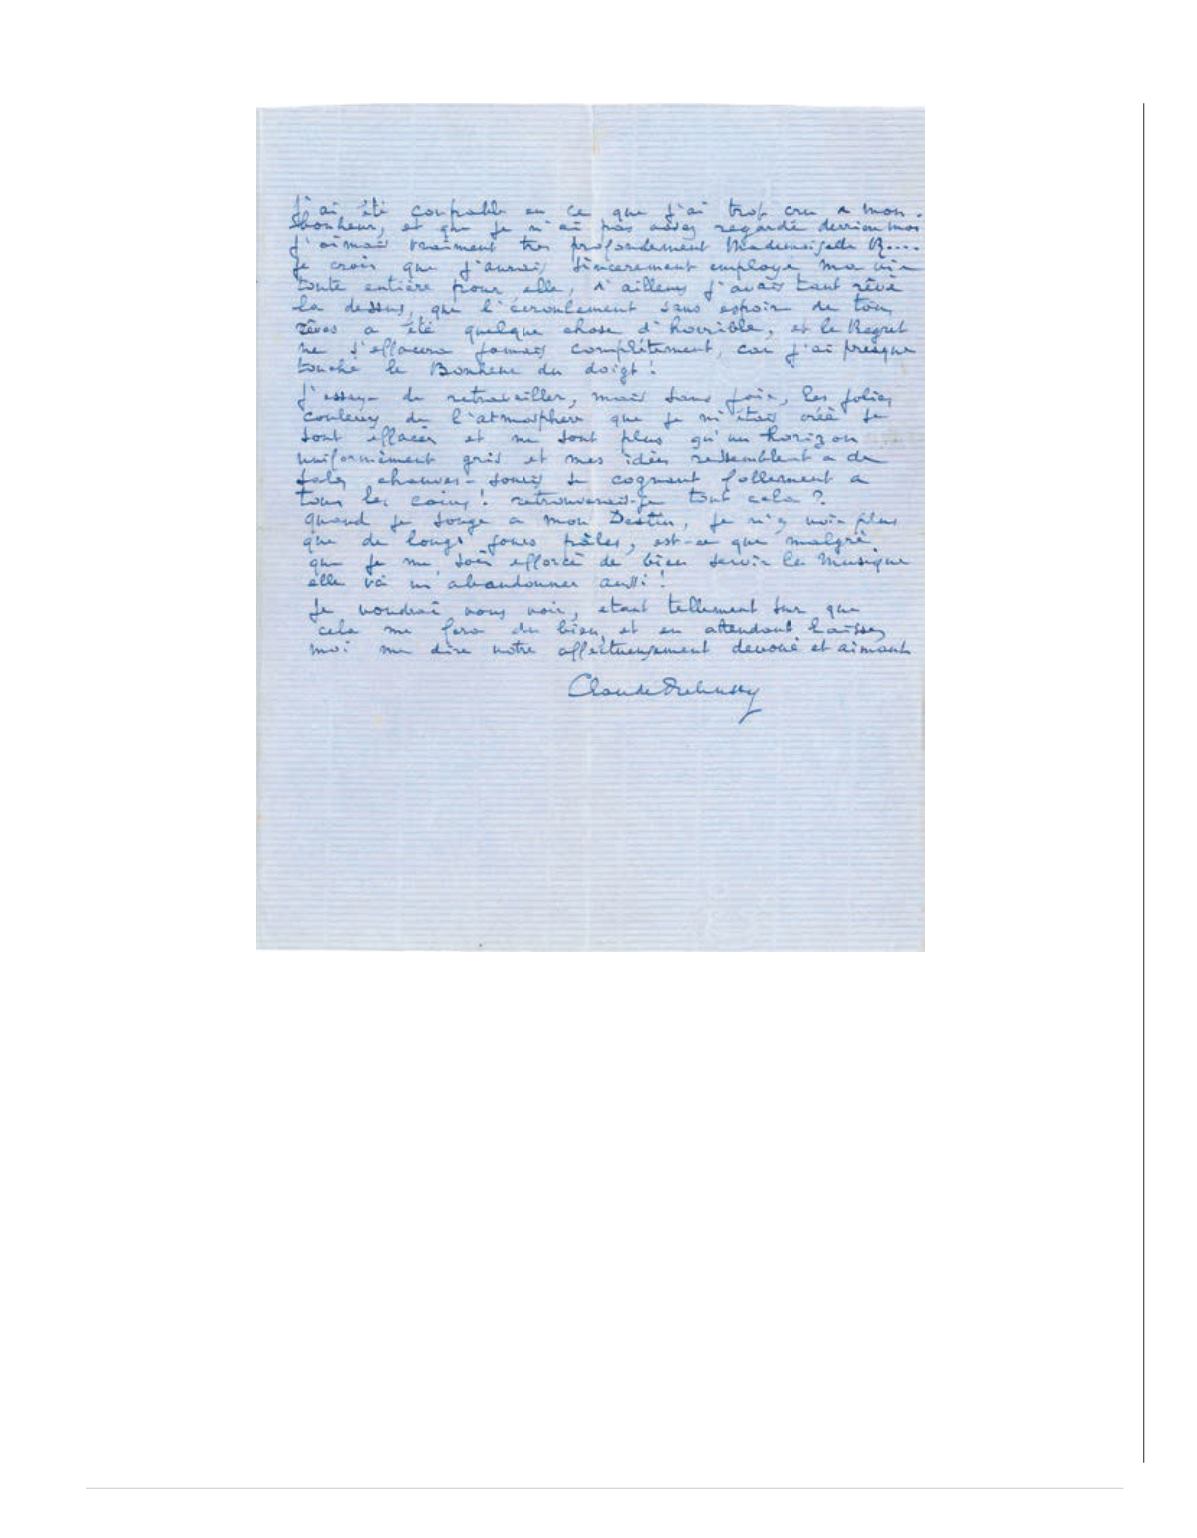 J'ai été coupable en ce que j'ai trop cru a mon
bonheur, et que je n'ai pas assez regardé derrière moi
J'aimais vraiment très profondement Mademoiselle R....
Je crois que j'aurais sincerement employé ma vie
toute entière pour elle, d'ailleurs j'avais tant rêvé
la dessus, que l'écroulement sans espoir de tous
rêves a été quelque chose d'horrible, et le Regret
ne s'effacera jamais complétement, car j'ai presque
touché le Bonheur du doigt!
J'essaye de retravailler, mais sans joie, les jolies
couleurs de l'atmosphère que je m'étais créé se
sont effacés et ne sont plus qu'un horizon
uniformèment gris et mes idées ressemblent a de
sales chauves-souris se cognant follement a
tous les coins! retrouverais-je tout cela?
quand je songe a mon Destin, je n'y vois plus
que de longs jours pâles, est-ce que malgré
que je me sois efforcé de bien servir la Musique
elle va m'abandonner aussi!
Je voudrai vous voir, etant tellement sur que
cela me fera du bien, et en attendant laissez
moi me dire votre affectueusement devoué et aimant
Claude Debussy